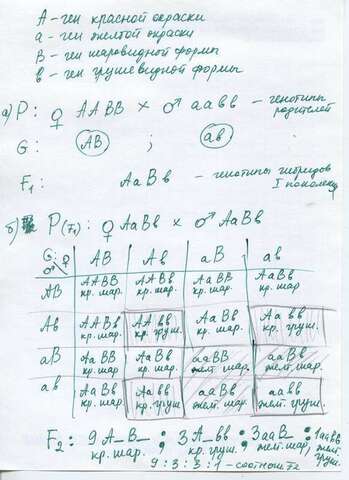 А - ген красной окраски
а - ген желтой окраски
В - ген шаровидной формы
в - ген грушевидной формы
а) Р: ♀ ААВВ × ♂ аавв - генотипы
родителей
G: АВ ; ав
F₁: АаВв - генотипы гибридов
I поколен
б) Р(F₁): ♀ АаВв × ♂ АаВв
G: ♀ ♂ АВ Ав аВ ав
АВ ААВВ кр. шар. ААВв кр. шар. АаВВ кр. шар. АаВв кр. шар
Ав ААВв кр. шар. ААвв кр. груш. АаВв кр. шар. Аавв кр. груш.
аВ АаВВ кр. шар АаВв кр. шар. ааВВ жел. шар. ааВв жел. шар.
ав АаВв кр. шар Аавв кр. груш. ааВв жел. шар. аавв жел. груш.
F₂: 9 А_В_ : 3 А_вв : 3 ааВ_ : 1 аавв
кр. шар. кр. груш. жел. шар. жел. груш.
9:3:3:1 - соотнош. F₂